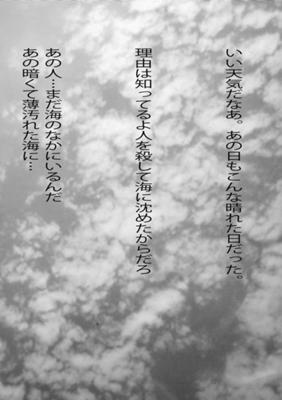 いい天気だなあ。あの日もこんな晴れた日だった。
理由は知ってるよ人を殺して海に沈めたからだろ
あの人…まだ海のなかにいるんだ
あの暗くて薄汚れた海に…